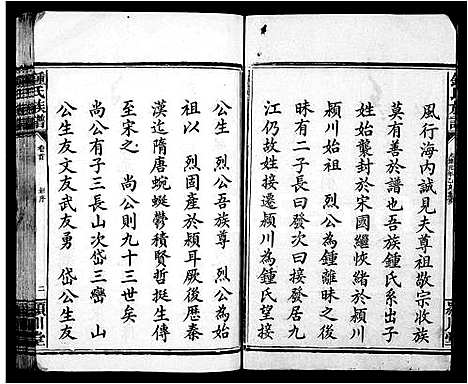 風行海內誠見夫尊祖敬宗收族
莫有善於譜也吾族鍾氏系出子
姓始襲封於宋國繼恢緒於潁川
潁川始祖　烈公為鍾離昧之後
昧有二子長曰發次曰接發居九
江仍故姓接遷潁川為鍾氏望接
祖以　烈固產於潁耳厥後歷秦
祖　烈公吾族尊　烈公為始
漢迄隋唐蜿蜒鬱積賢哲挺生傳
至宋之　尚公則九十三世矣
尚公有子三長山次岱三巒　山
公生友文友武友勇　岱公生友
鍾氏族譜
卷首
二
潁川堂